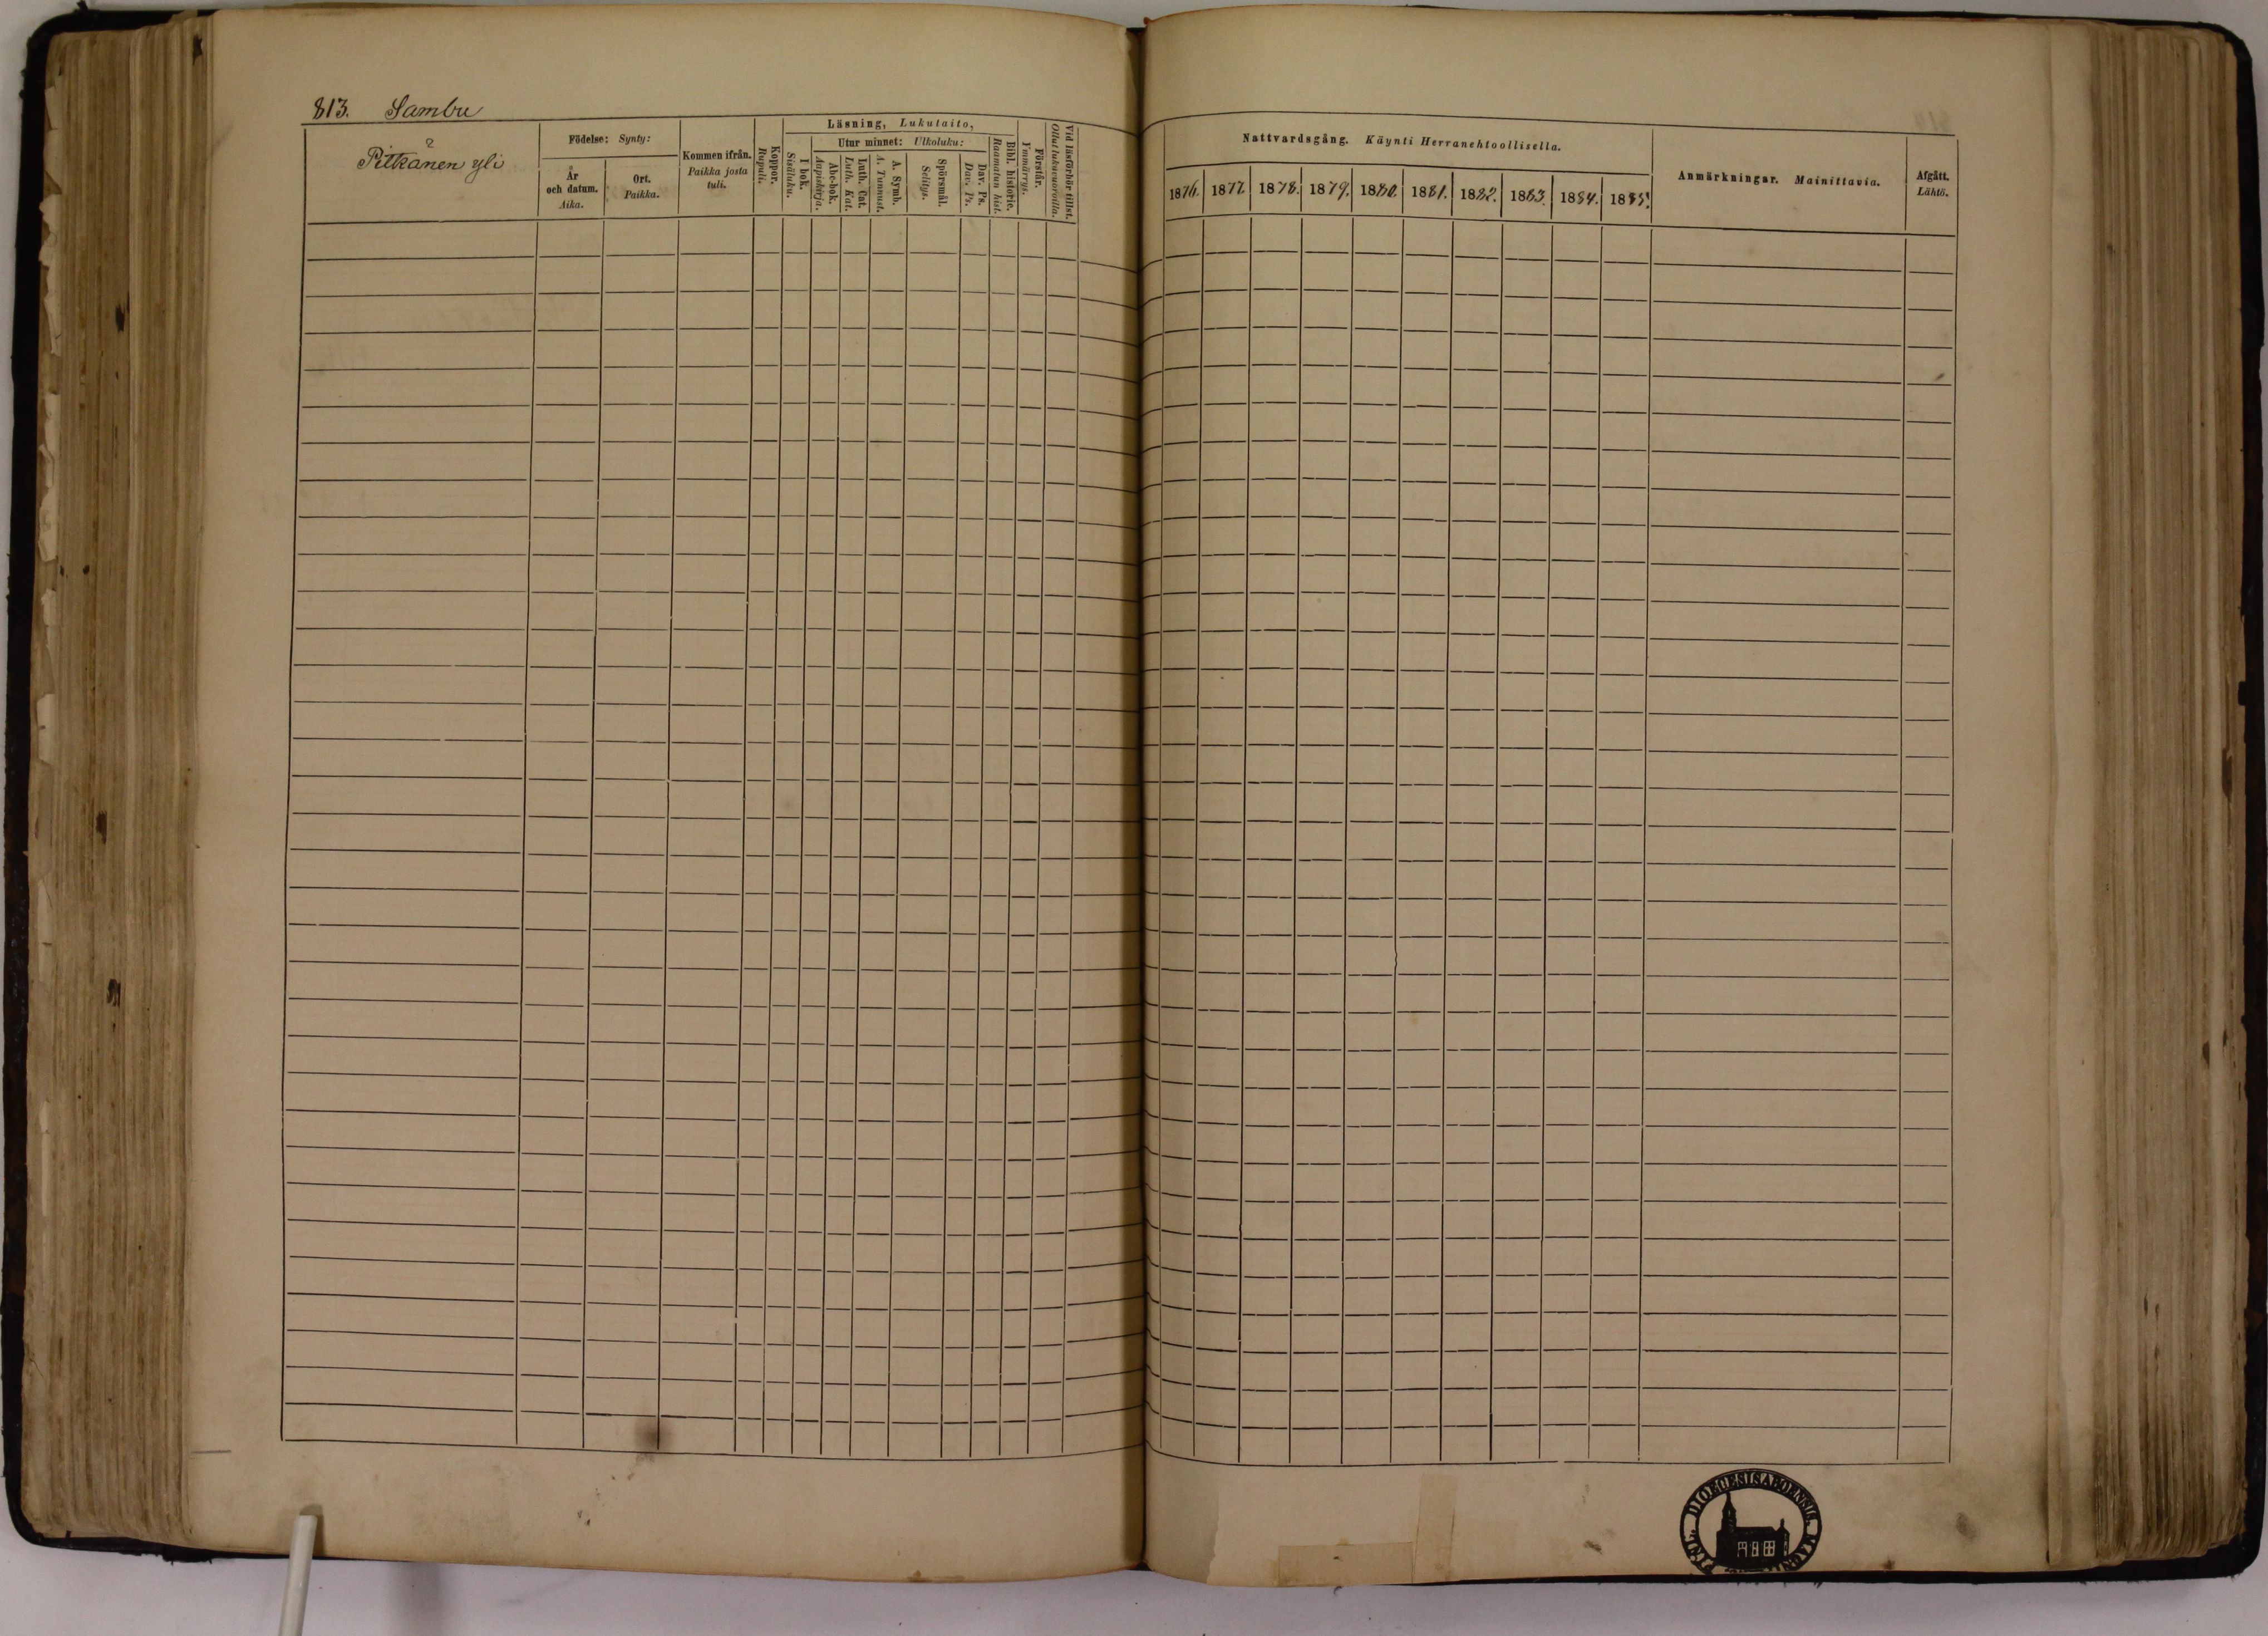 813. Sambu
2
Pitkänen yli
Födelse: Synty:
År
och datum.
Aika.
Ort.
Paikka.
Kommen ifrån.
Paikka josta
tuli.
Koppor.
Rupuli.
Läsning, Lukutaito,
I bok.
Sisäluku.
Utur minnet: Ulkoluku:
Abc-bok.
Aapiskirja.
Luth. Cat.
Luth. Kat.
A. Symb.
A. Tunnust.
Spörsmål.
Selitys.
Dav. Ps.
Dav. Ps.
Bibl. historie.
Raamatun hist.
Förstår.
Ymmärrys.
Vid läsförhör tillst.
Ollut lukuvuoroilla.
Nattvardsgång. Käynti Herranehtoollisella.
1876. 1877. 1878. 1879. 1880. 1881. 1882. 1883. 1884. 1885.
Anmärkningar. Mainittavia.
Afgått.
Lähtö.
DIOECESIS ABOENSIS